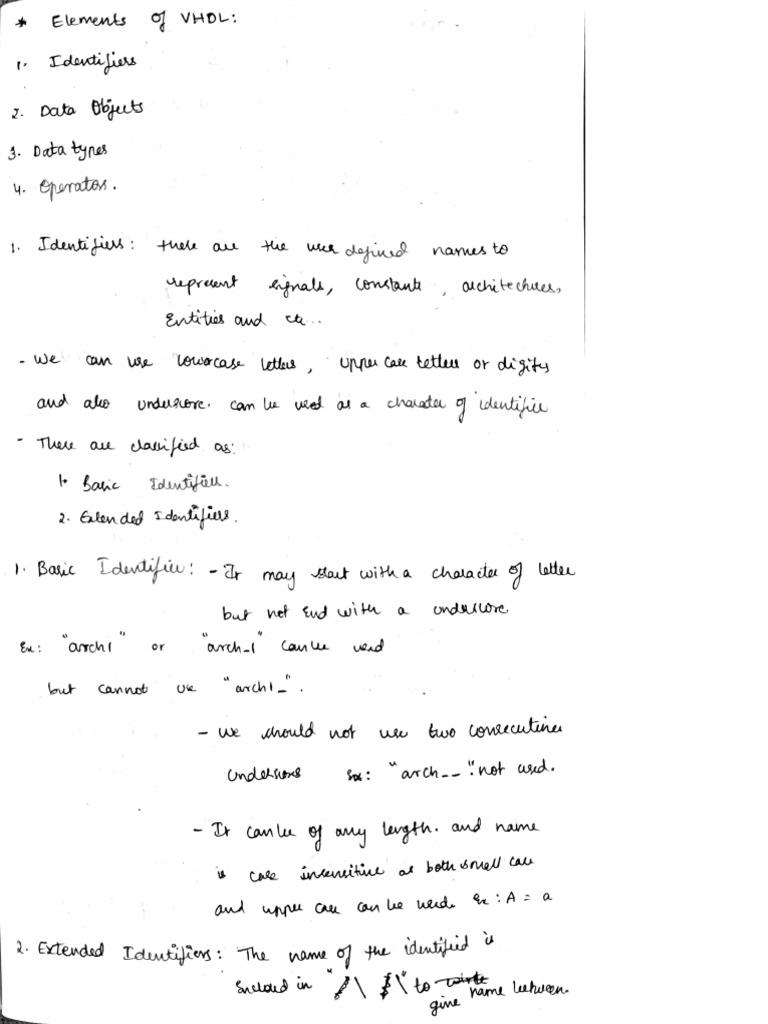 * Elements of VHDL:
1. Identifiers
2. Data Objects
3. Data types
4. Operators.
1. Identifiers: these are the user defined names to
represent signals, constants, architectures,
Entities and etc..
- We can use lowercase letters, upper case letters or digits
and also underscore. can be used as a character of identifier
- These are classified as:
1. Basic Identifiers.
2. Extended Identifiers.
1. Basic Identifier: - It may start with a character of letter
but not end with a underscore
Ex: "arch1" or "arch_1" can be used
but cannot use "arch1_".
- We should not use two consecutive
underscores Ex: "arch__" not used.
- It can be of any length. and name
is case insensitive as both small case
and upper case can be used. Ex: A = a
2. Extended Identifiers: The name of the identified is
Enclosed in "\ \" to give name between.